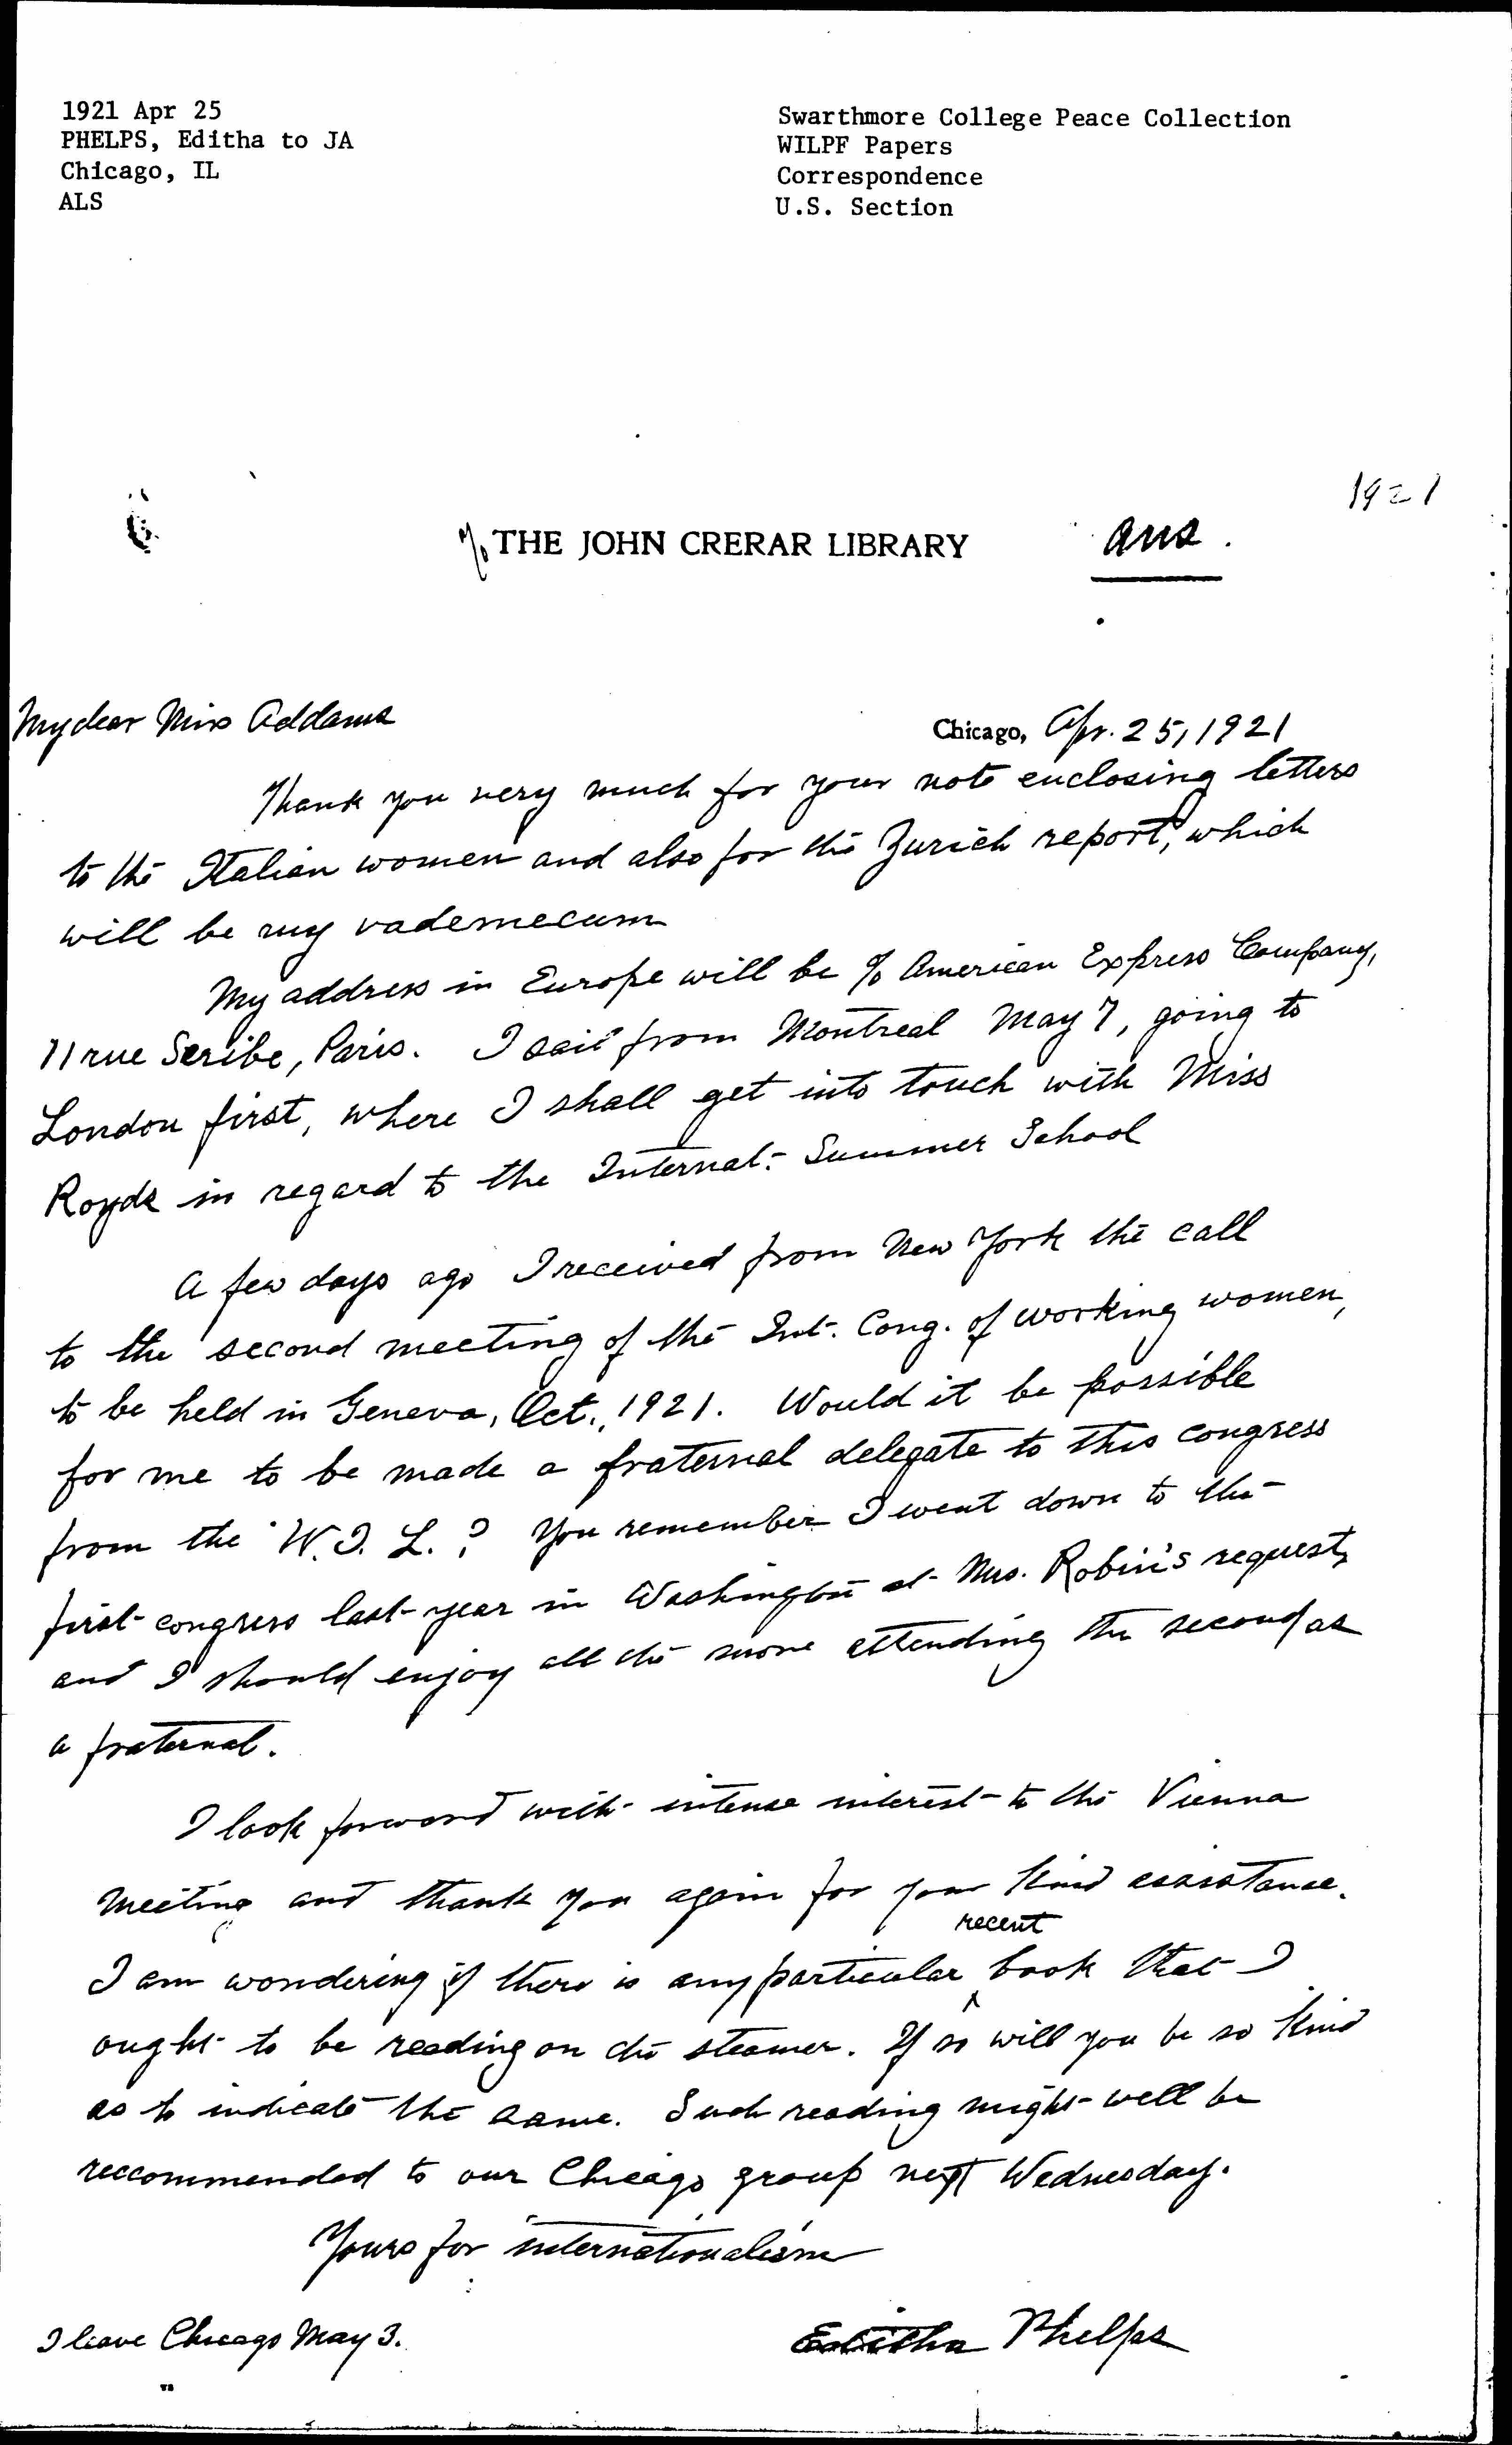 1921 Apr 25
PHELPS, Editha to JA
Chicago, IL
ALS
Swarthmore College Peace Collection
WILPF Papers
Correspondence
U.S. Section
1921
℅ THE JOHN CRERAR LIBRARY
ans.
My dear Miss Addams
Chicago, Apr. 25, 1921
Thank you very much for your note enclosing letters
to the Italian women and also for the Zurich report, which
will be my vademecum
My address in Europe will be ℅ American Express Company,
11 rue Scribe, Paris. I sail from Montreal May 7, going to
London first, where I shall get into touch with Miss
Royds in regard to the Internat. Summer School
A few days ago I received from New York the call
to the second meeting of the Int. Cong. of working women,
to be held in Geneva, Oct., 1921. Would it be possible
for me to be made a fraternal delegate to this congress
from the W.I.L.? You remember I went down to the
first congress last year in Washington at Mrs. Robin's request,
and I should enjoy all the more attending the second as
a fraternal.
I look forward with intense interest to the Vienna
meeting and thank you again for your kind assistance.
recent
I am wondering if there is any particular ^ book that I
ought to be reading on the steamer. If so will you be so kind
as to indicate the same. Such reading might well be
reccommended to our Chicago group next Wednesday.
Yours for internationalism
I leave Chicago May 3.
Editha Phelps